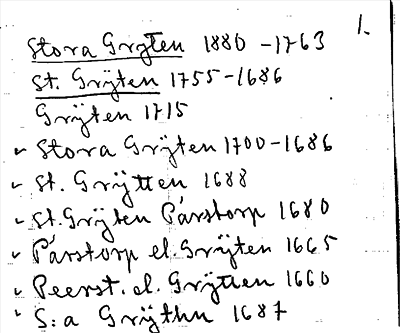 1.
Stora Gryten 1880 - 1763
St. Grÿten 1755 - 1686
Grÿten 1715
Stora Grÿten 1700 - 1686
St. Grÿtten 1688
St. Grÿten Pärstorp 1680
Pärstorp el. Grÿten 1665
Peerst. el. Grÿtten 1660
S:a Grÿthn 1687